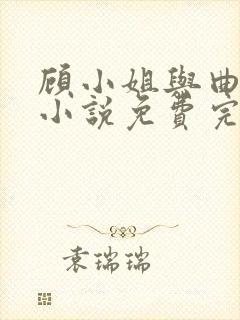 顾小姐與曲
小說免費完
袁瑞瑞